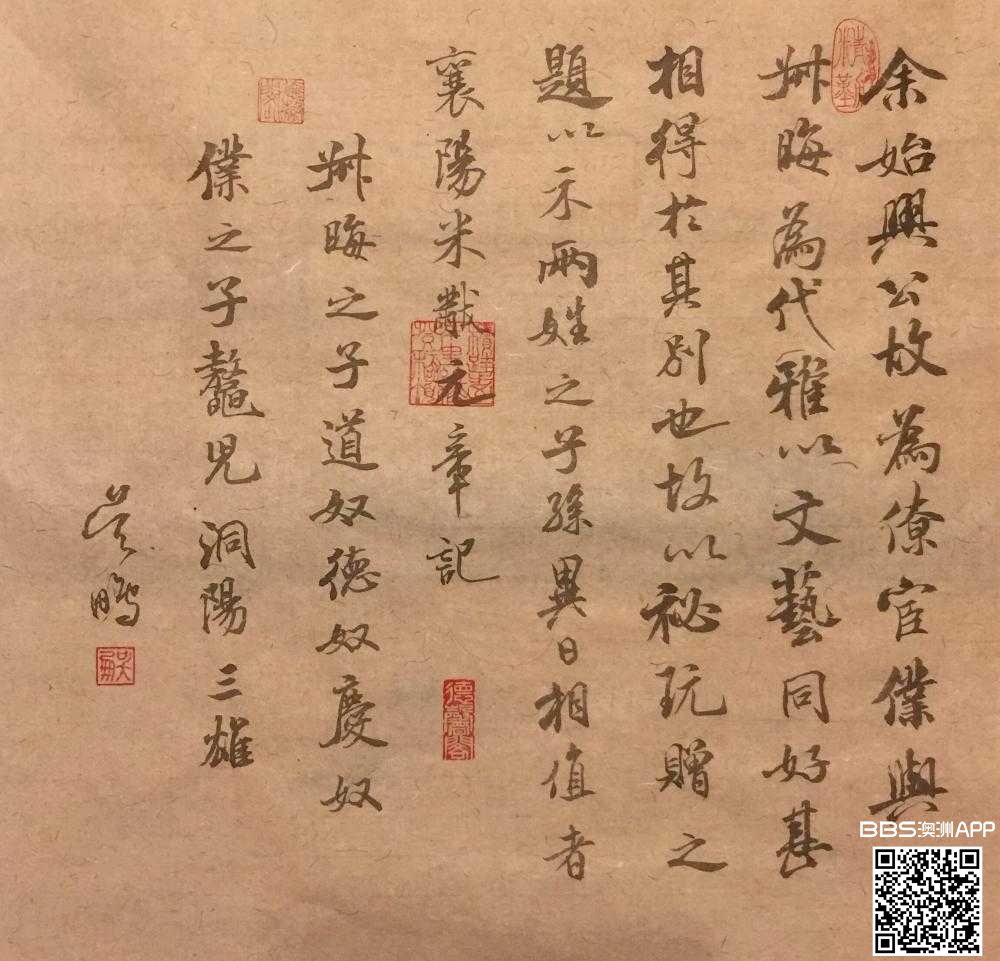 余始興公故為僚宦僕與
叔晦為代雅以文藝同好甚
相得於其別也故以祕玩贈之
題以示兩姓之子孫異日相值者
襄陽米黻元章記
叔晦之子道奴德奴慶奴
僕之子鼇兒洞陽三雄
吳鵬
BBS澳洲APP